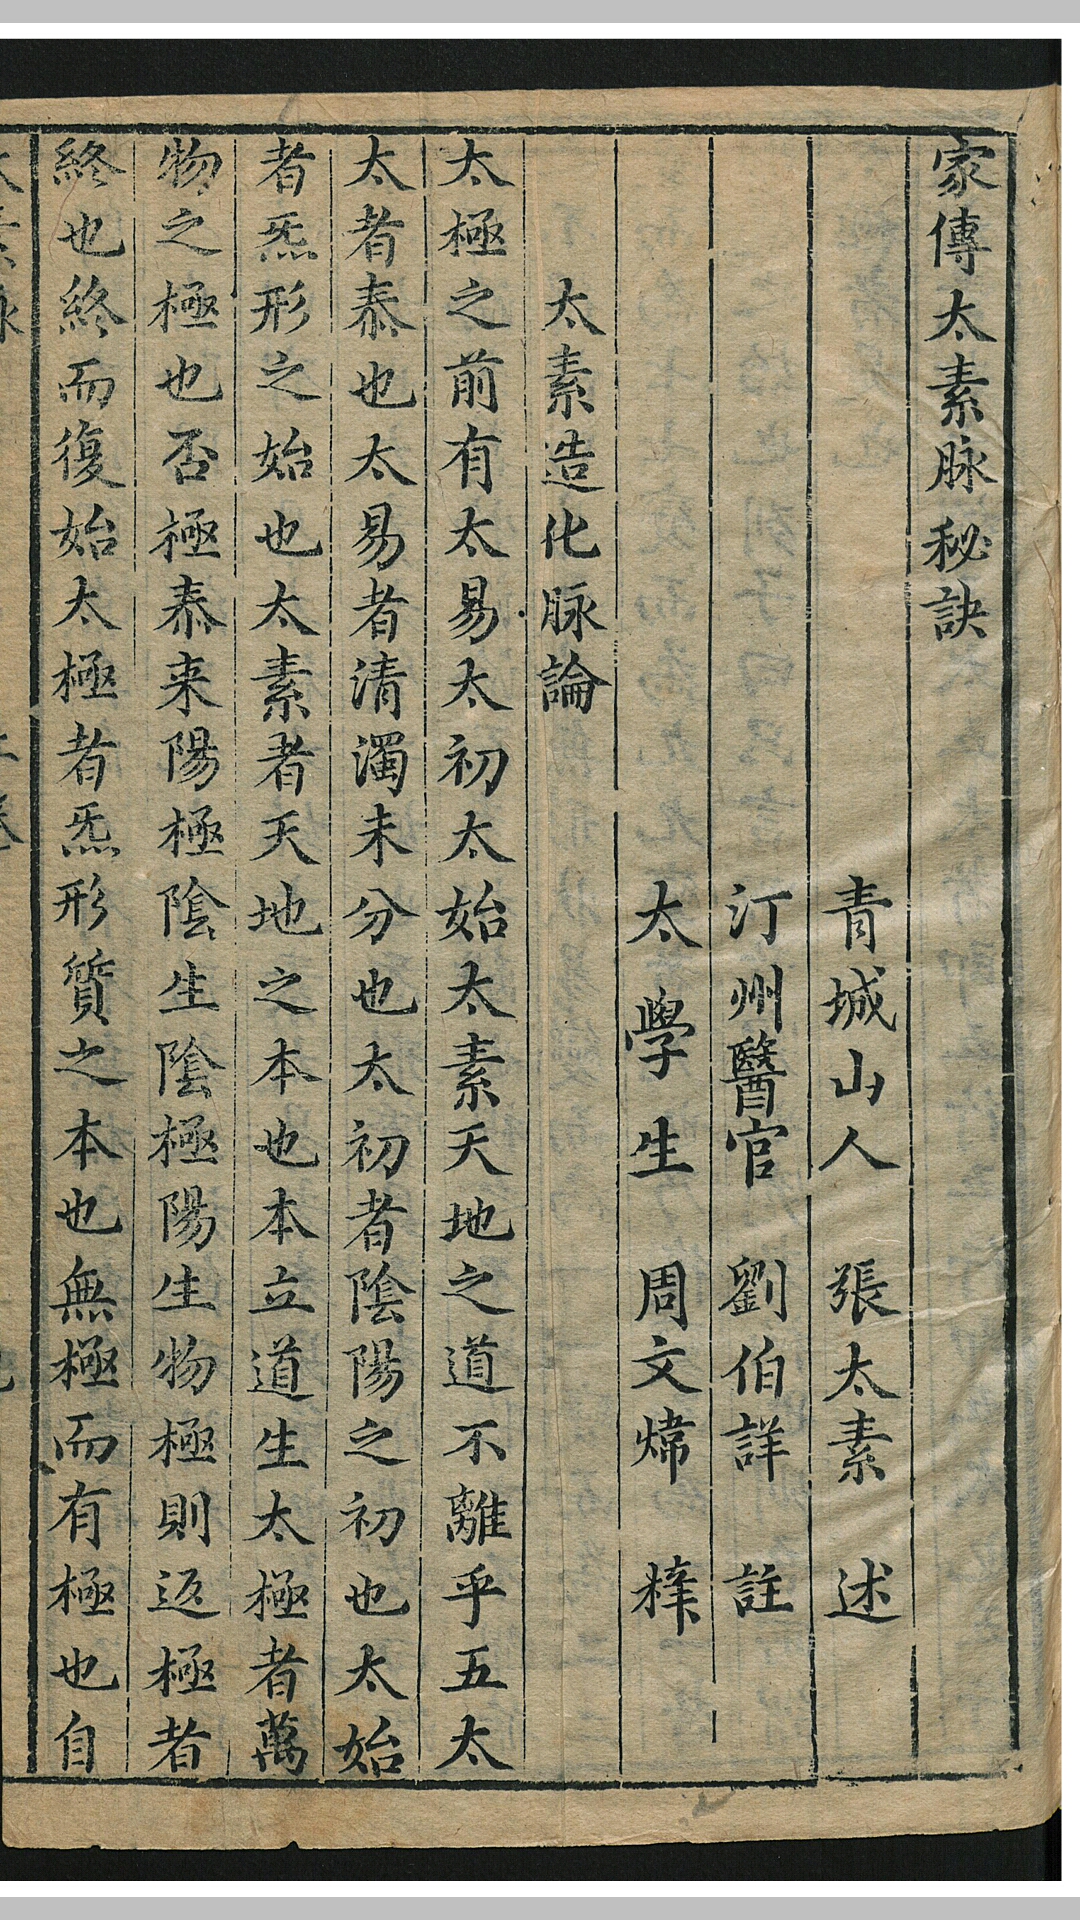 家傳太素脉秘訣
青城山人　張太素　述
汀州醫官　劉伯詳　註
太學生　周文煒　梓
太素造化脉論
太極之前有太易太初太始太素天地之道不離乎五太
太者泰也太易者清濁未分也太初者陰陽之初也太始
者炁形之始也太素者天地之本也本立道生太極者萬
物之極也否極泰来陽極陰生陰極陽生物極則返極者
終也終而復始太極者炁形質之本也無極而有極也自